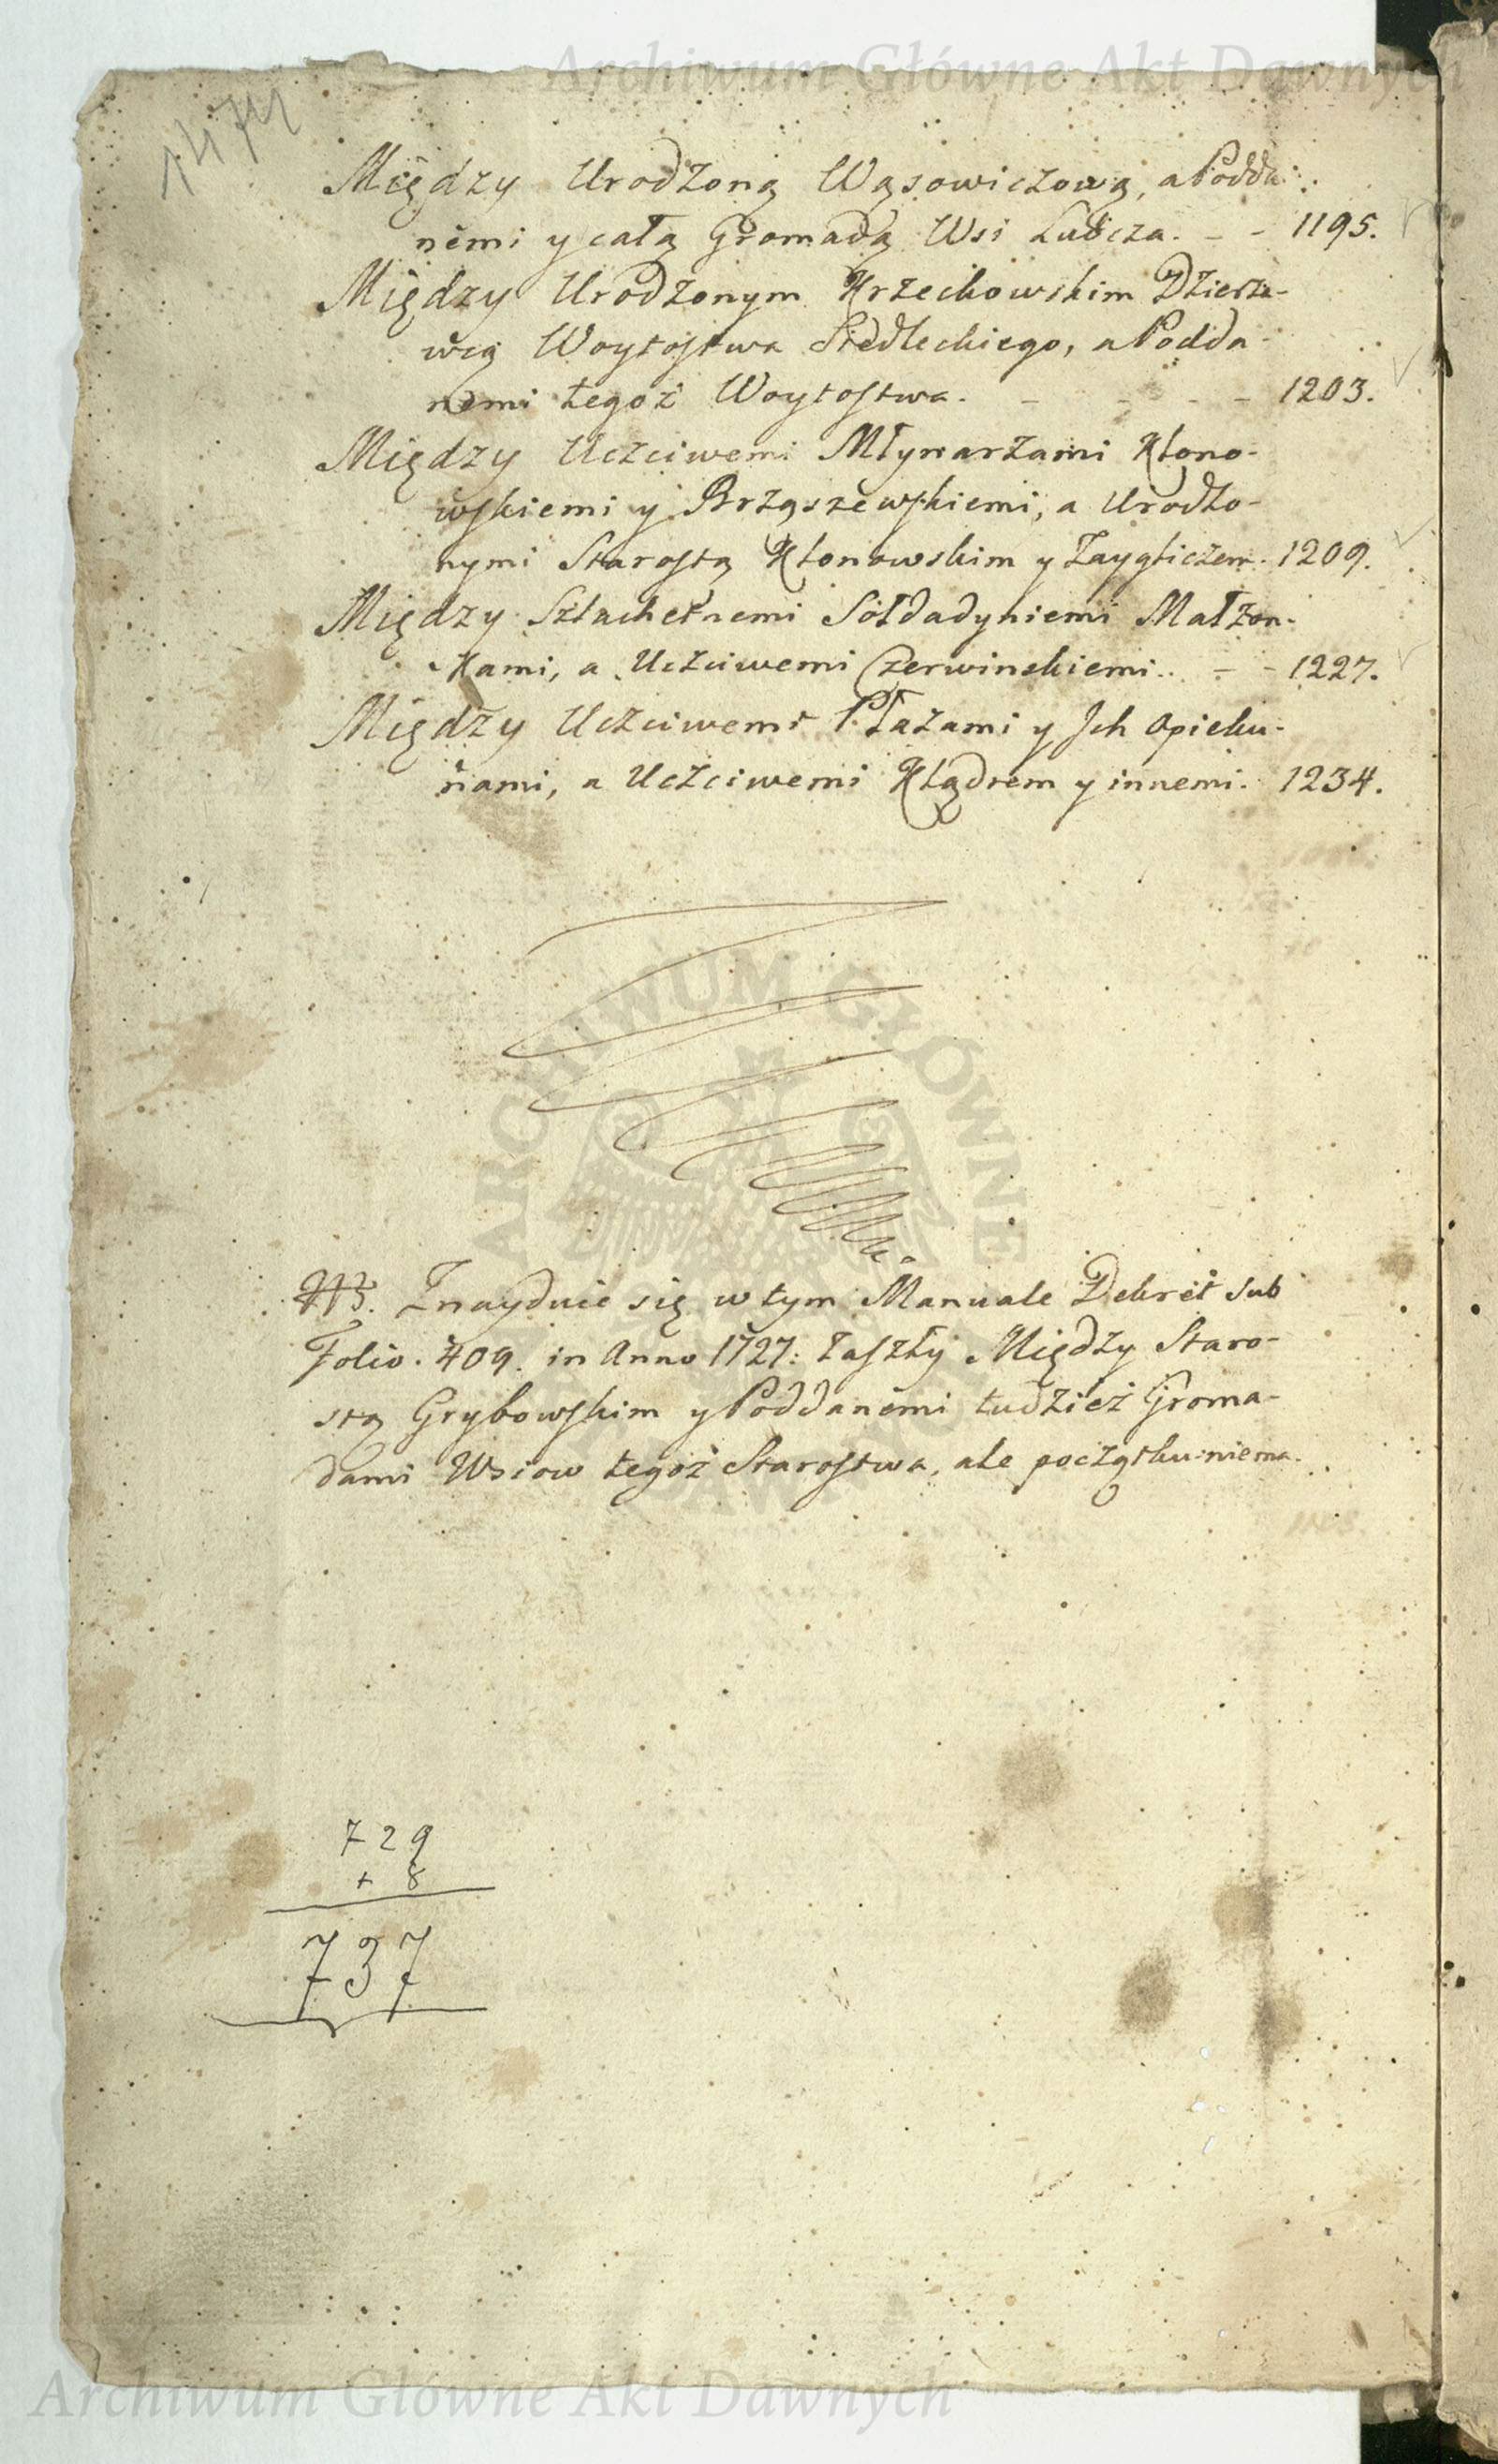 Archiwum Główne Akt Dawnych
Między Urodzoną Wąsowiczową, a Podda:
nemi y całą Gromadą Wsi Lubcza. - - 1195.
Między Urodzonym Krzechowskim Dzierza-
wcą Woytostwa Siedleckiego, a Podda-
nemi tegoż Woytostwa. - - - - 1203.
Między Uczciwemi Młynarzami Kłono-
wskiemi y Brząszewskiemi, a Urodzo-
nymi Starostą Kłonowskim y 1209.
Między Szlachetnemi Sołdadyniemi Małżon-
kami, a Uczciwemi Czerwinskiemi. - - 1227.
Między Uczciwemi Płazami y Ich Opieku-
nami, a Uczciwemi Klądrem y innemi. 1234.
ARCHIWUM GŁÓWNE AKT DAWNYCH
NB. Znayduie się w tym Manuale Dekret sub
Folio. 409. in Anno 1727: zaszły Między Staro-
stą Grybowskim y Poddanemi tudzież Groma-
dami Wsiow tegoż Starostwa, ale początku niema.
729
+ 8
737
Archiwum Główne Akt Dawnych